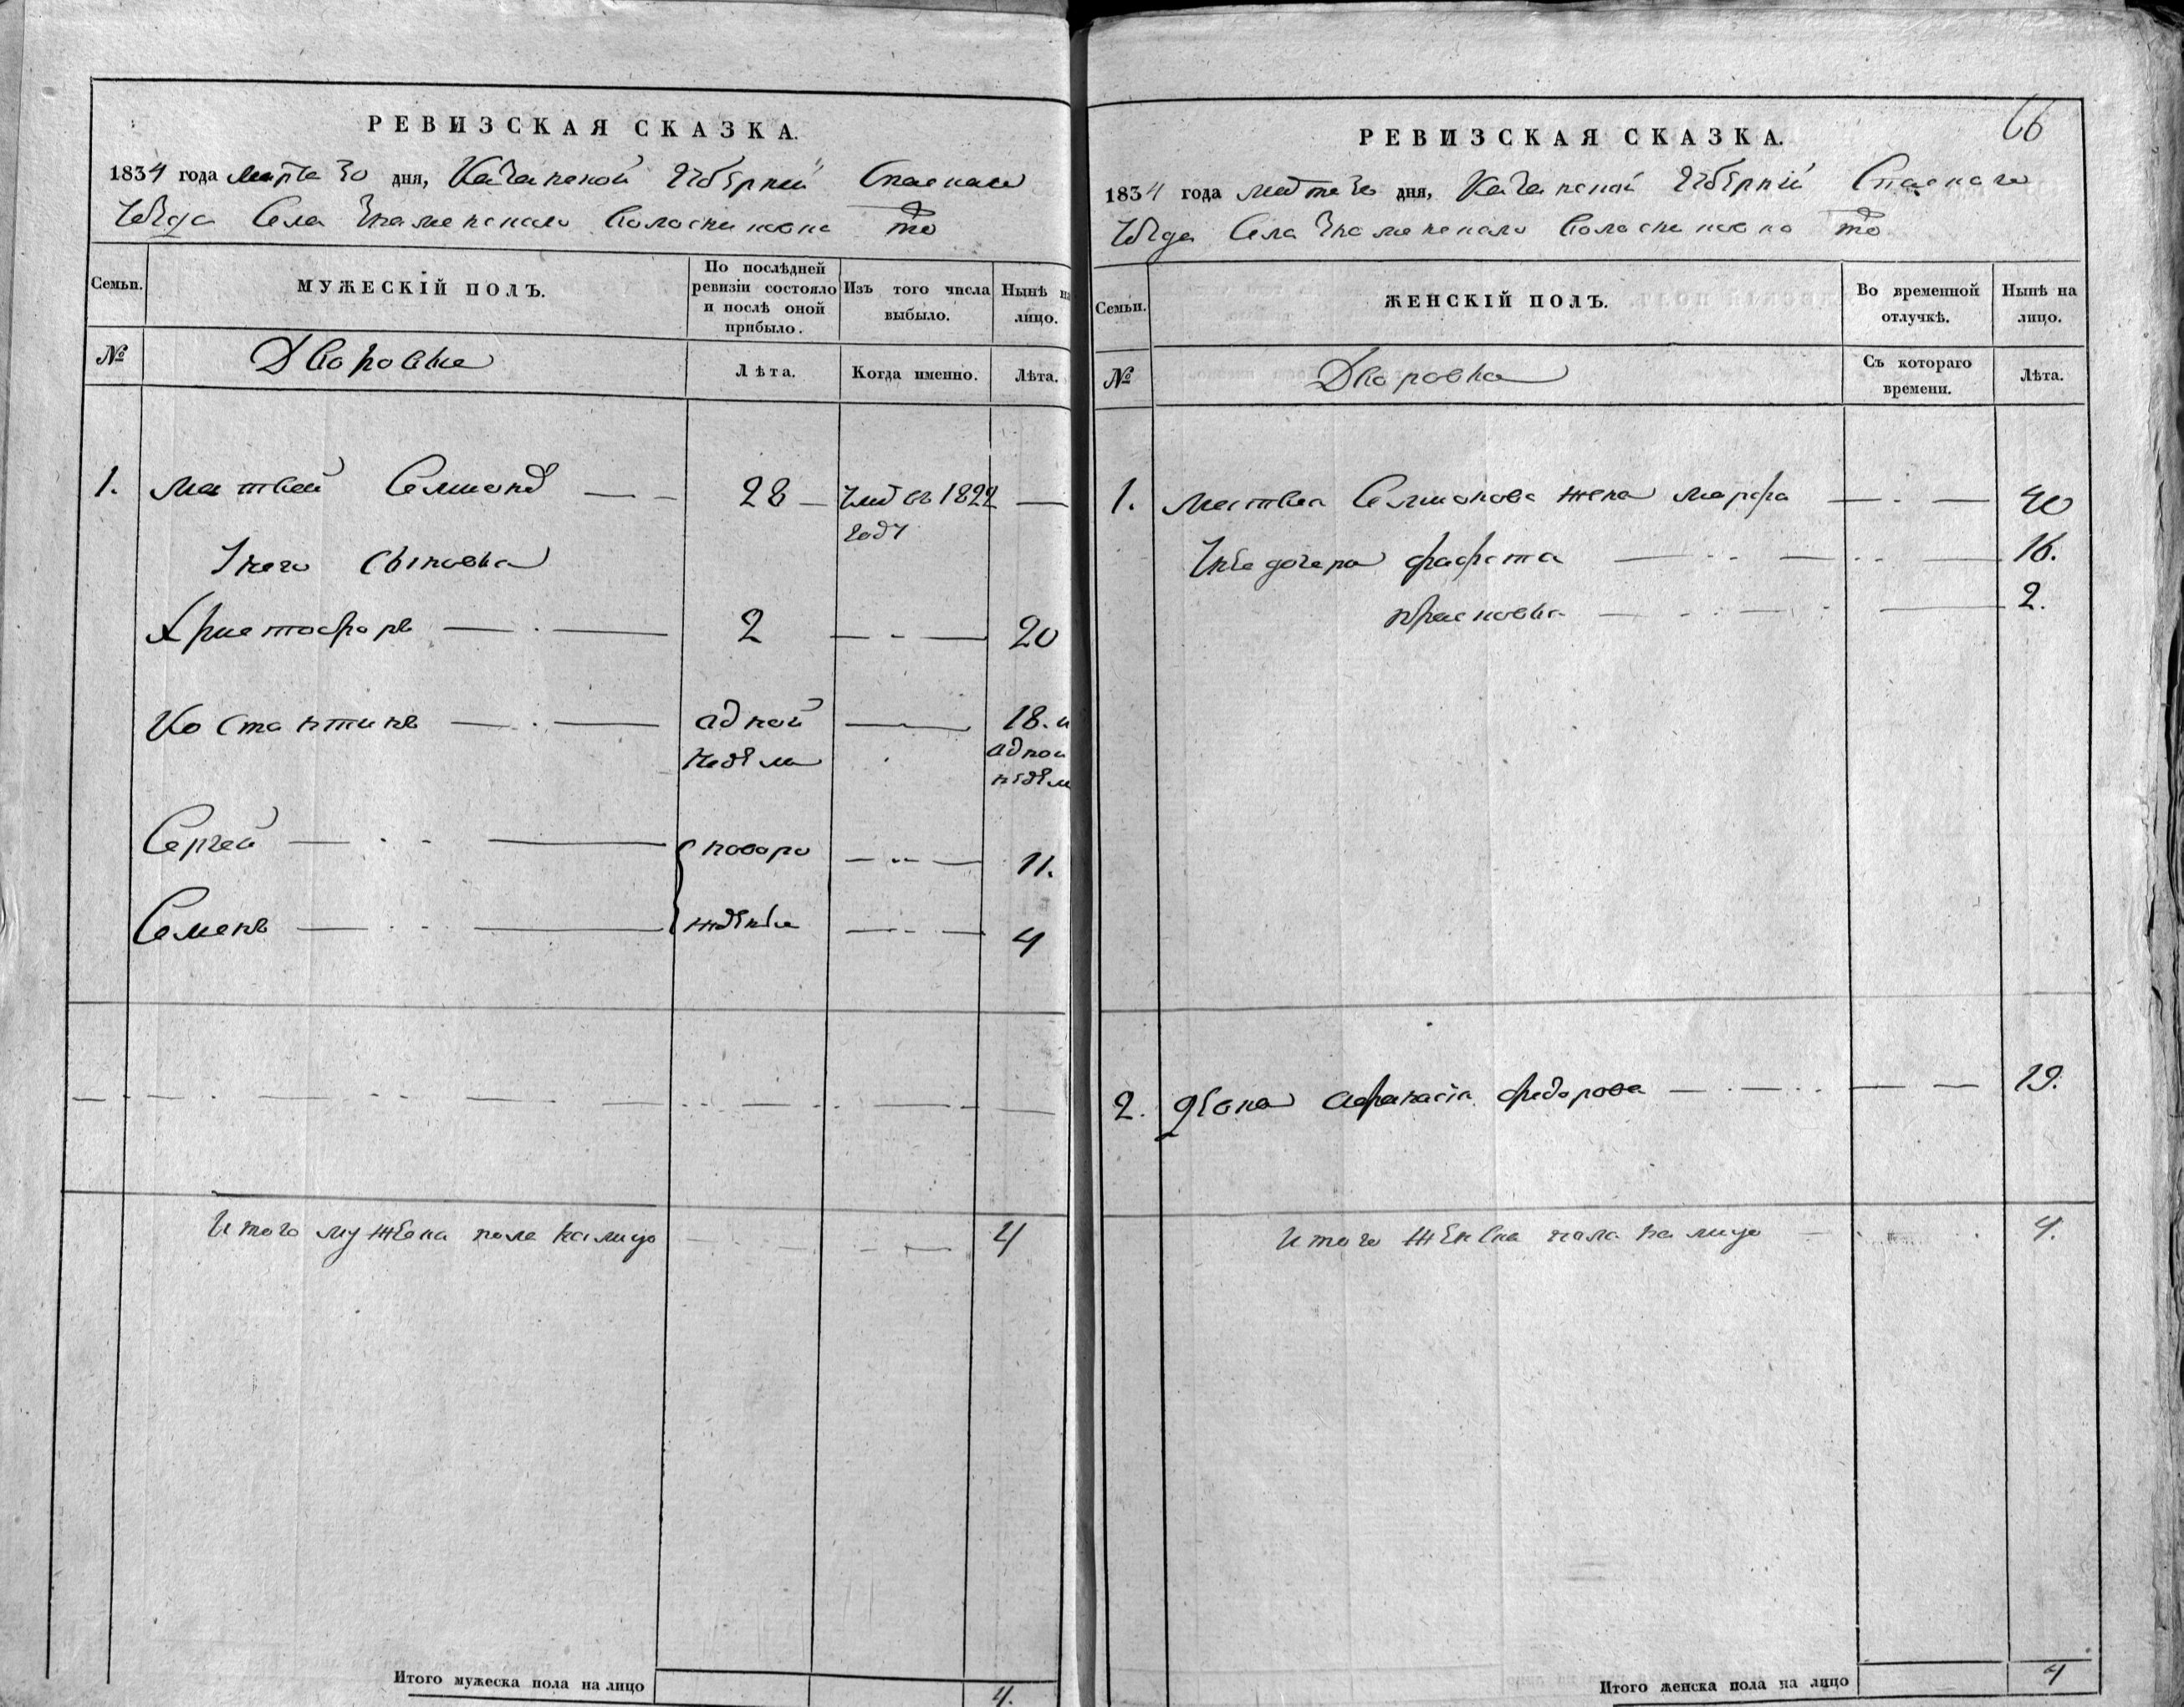 РЕВИЗСКАЯ СКАЗКА.
1834 года Марта 30 дня, Казанской Губернии Спаскаго
Уезда Села Знаменскаго
Семьи.
МУЖЕСКІЙ ПОЛЪ.
По послѣдней ревизіи состояло и послѣ оной прибыло.
Изъ того числа выбыло.
Нынѣ на лицо.
№
Дворовыя
Лѣта.
Когда именно.
Лѣта.
1. Матвей Семионов 28 Умр въ 1822
году
Унего Сыновья
Христофоръ 2 20
Костантинъ адной 18. и
недели адной
недели
Сергей поворо 11.
Семенъ ждении 4
Итого мужска пола налицо 4
Итого мужеска пола на лицо 4.
66
РЕВИЗСКАЯ СКАЗКА.
1834 года марта 30 дня, Казанской Губернии Спаскаго
Уезда Села Знаменскаго
Семьи.
ЖЕНСКІЙ ПОЛЪ.
Во временной отлучкѣ.
Нынѣ на лицо.
№
Дворовыя
Съ котораго времени.
Лѣта.
1. Матвея Семионова жена марфа 40
Унее дочери 16.
2.
2. афанасіа федорова 19.
Итого женска пола на лицо 4.
Итого женска пола на лицо 4